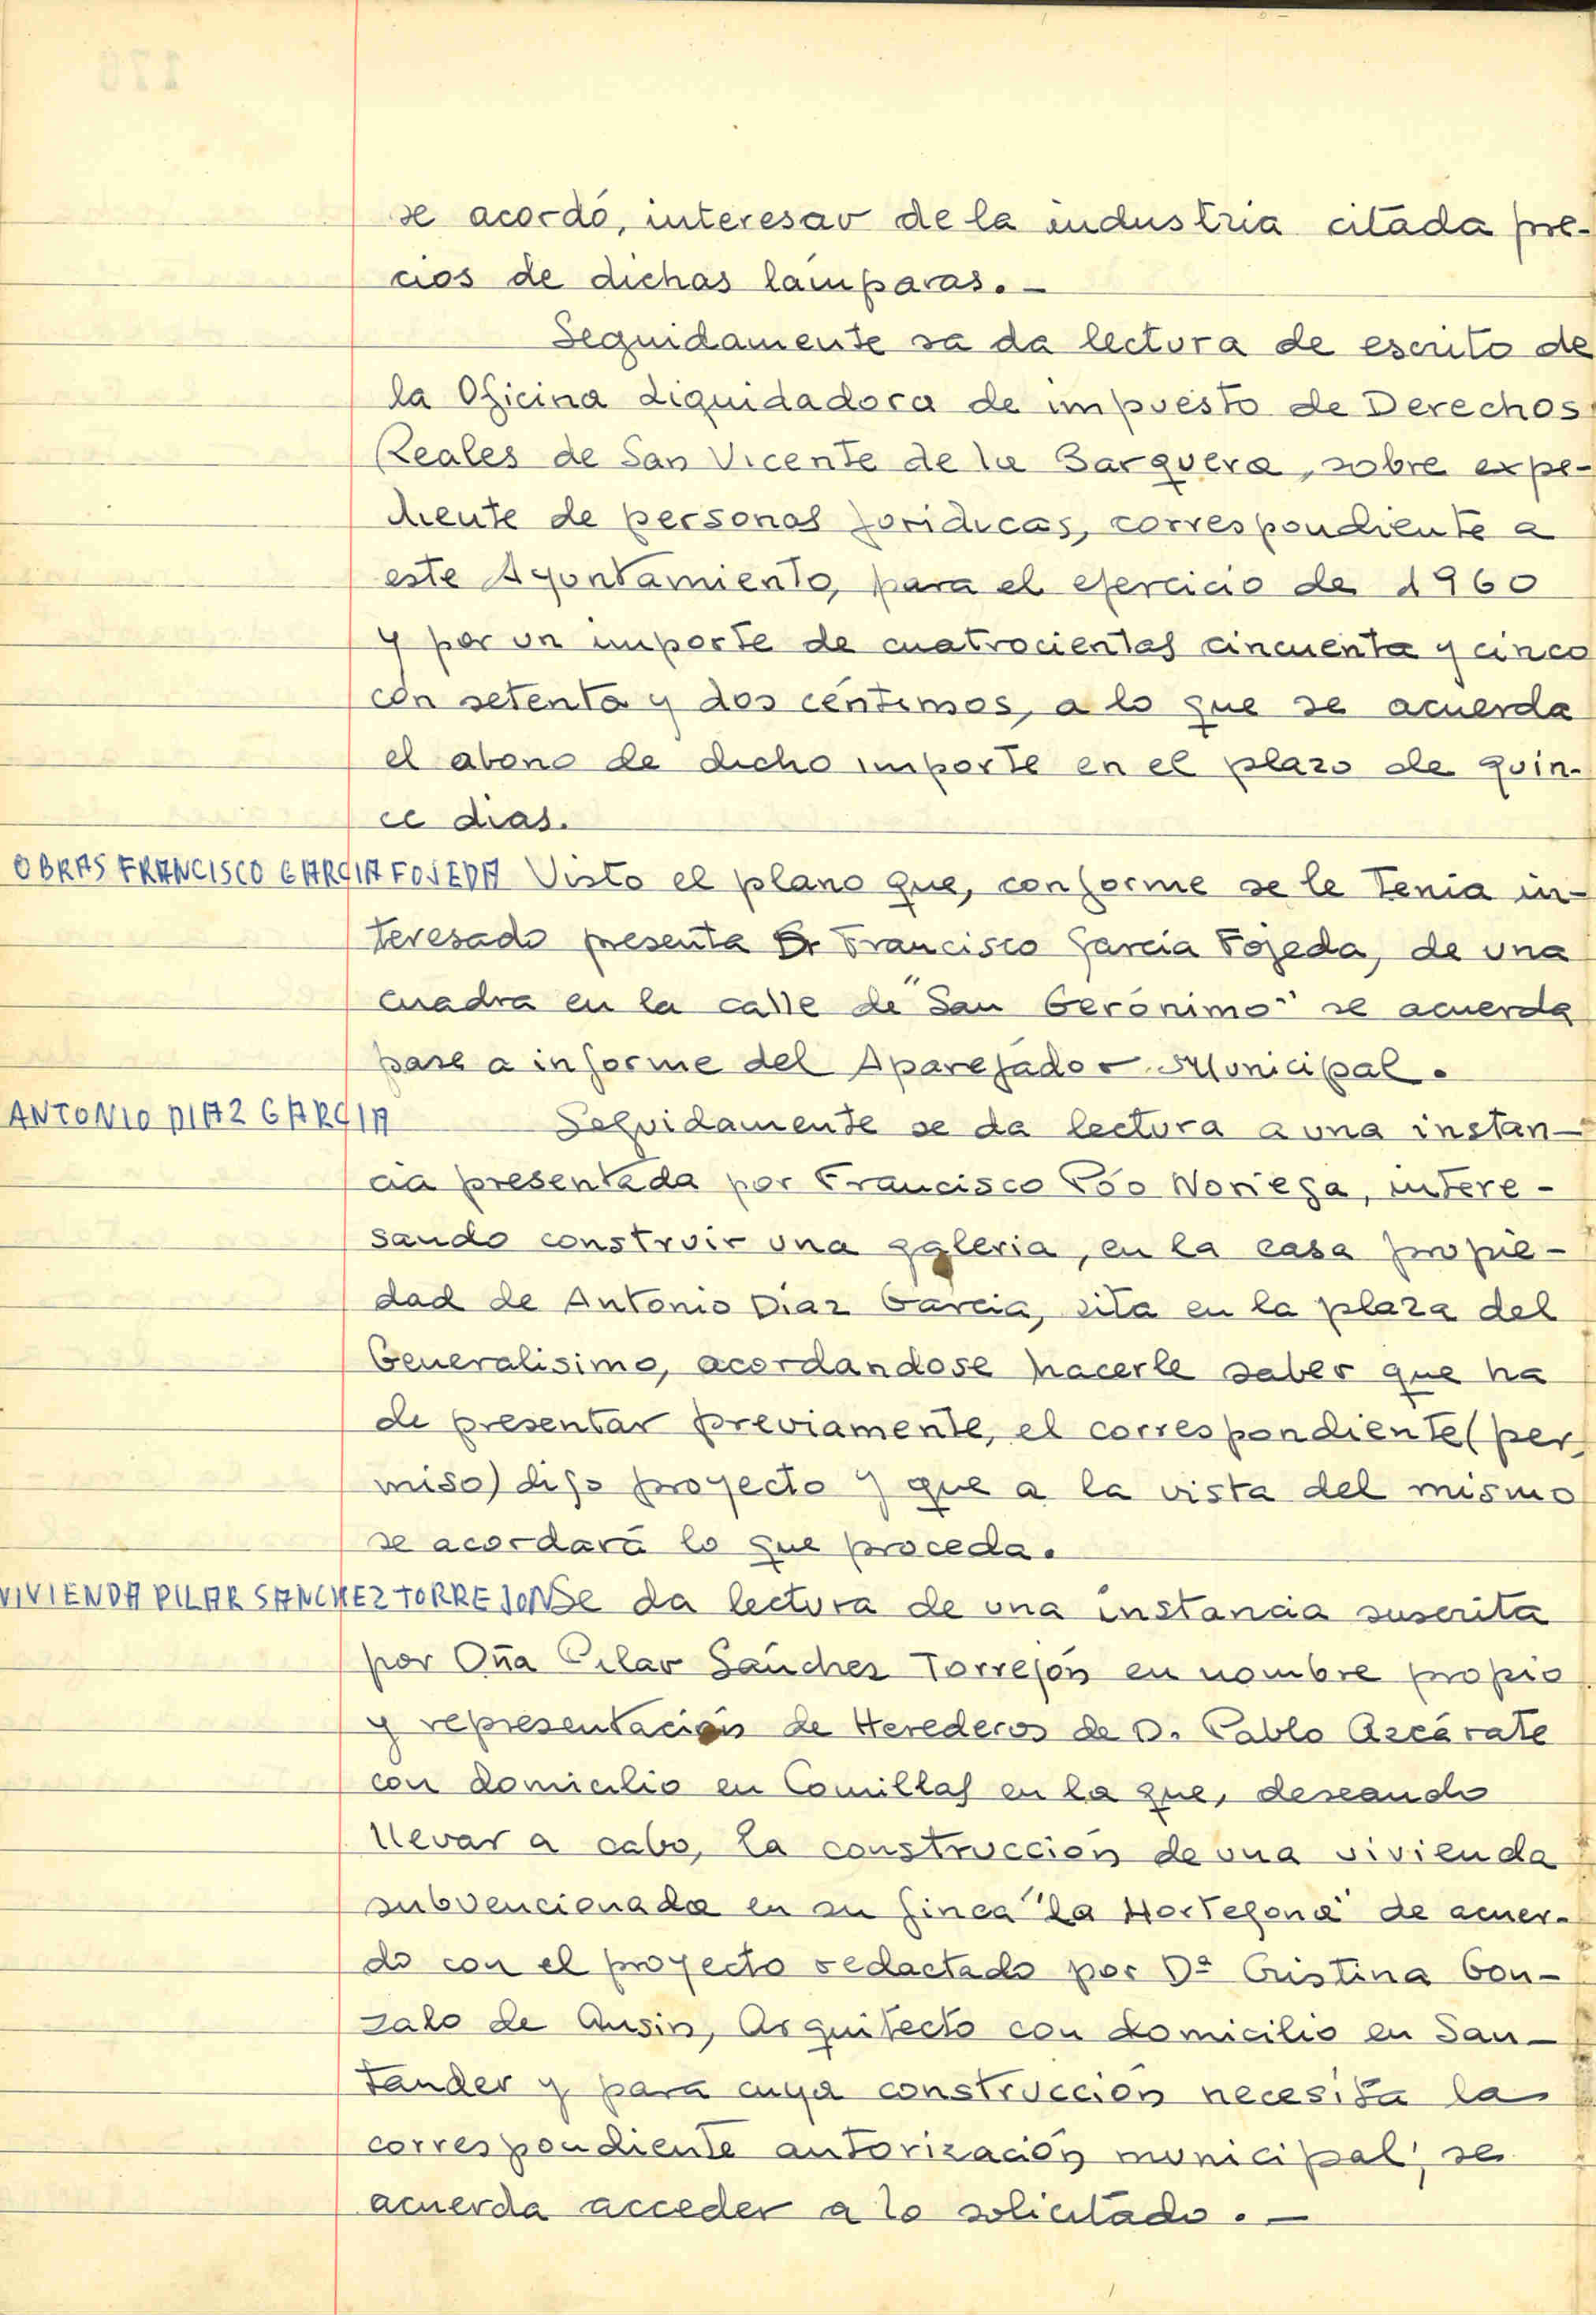 se acordó, interesar de la industria citada pre-
cios de dichas lámparas. -
Seguidamente sa da lectura de escrito de
la Oficina Liquidadora de impuesto de Derechos
Reales de San Vicente de la Barquera, sobre expe-
diente de personas juridicas, correspondiente a
este Ayuntamiento, para el ejercicio de 1960
y por un importe de cuatrocientas cincuenta y cinco
con setenta y dos céntimos, a lo que se acuerda
el abono de dicho importe en el plazo de quin-
ce dias.
OBRAS FRANCISCO GARCIA FOJEDA Visto el plano que, conforme se le tenia in-
teresado presenta Dr Francisco Garcia Fojeda, de una
cuadra en la calle de "San Gerónimo" se acuerda
pase a informe del Aparejador Municipal.
ANTONIO DIAZ GARCIA Seguidamente se da lectura a una instan-
cia presentada por Francisco Póo Noriega, intere-
sando construir una galeria, en la casa propie-
dad de Antonio Diaz Garcia, sita en la plaza del
Generalisimo, acordandose hacerle saber que ha
de presentar previamente, el correspondiente (per-
miso) dijo proyecto y que a la vista del mismo
se acordará lo que proceda.
VIVIENDA PILAR SANCHEZ TORREJON Se da lectura de una instancia suscrita
por Dña Pilar Sánchez Torrejón en nombre propio
y representación de Herederos de D. Pablo Azcárate
con domicilio en Comillas en la que, deseando
llevar a cabo, la construcción de una vivienda
subvencionada en su finca "La Hortegona" de acuer-
do con el proyecto redactado por Dª Cristina Gon-
zalo de Ausin, Arquitecto con domicilio en San-
tander y para cuya construcción necesita la
correspondiente autorización municipal, se
acuerda acceder a lo solicitado. -